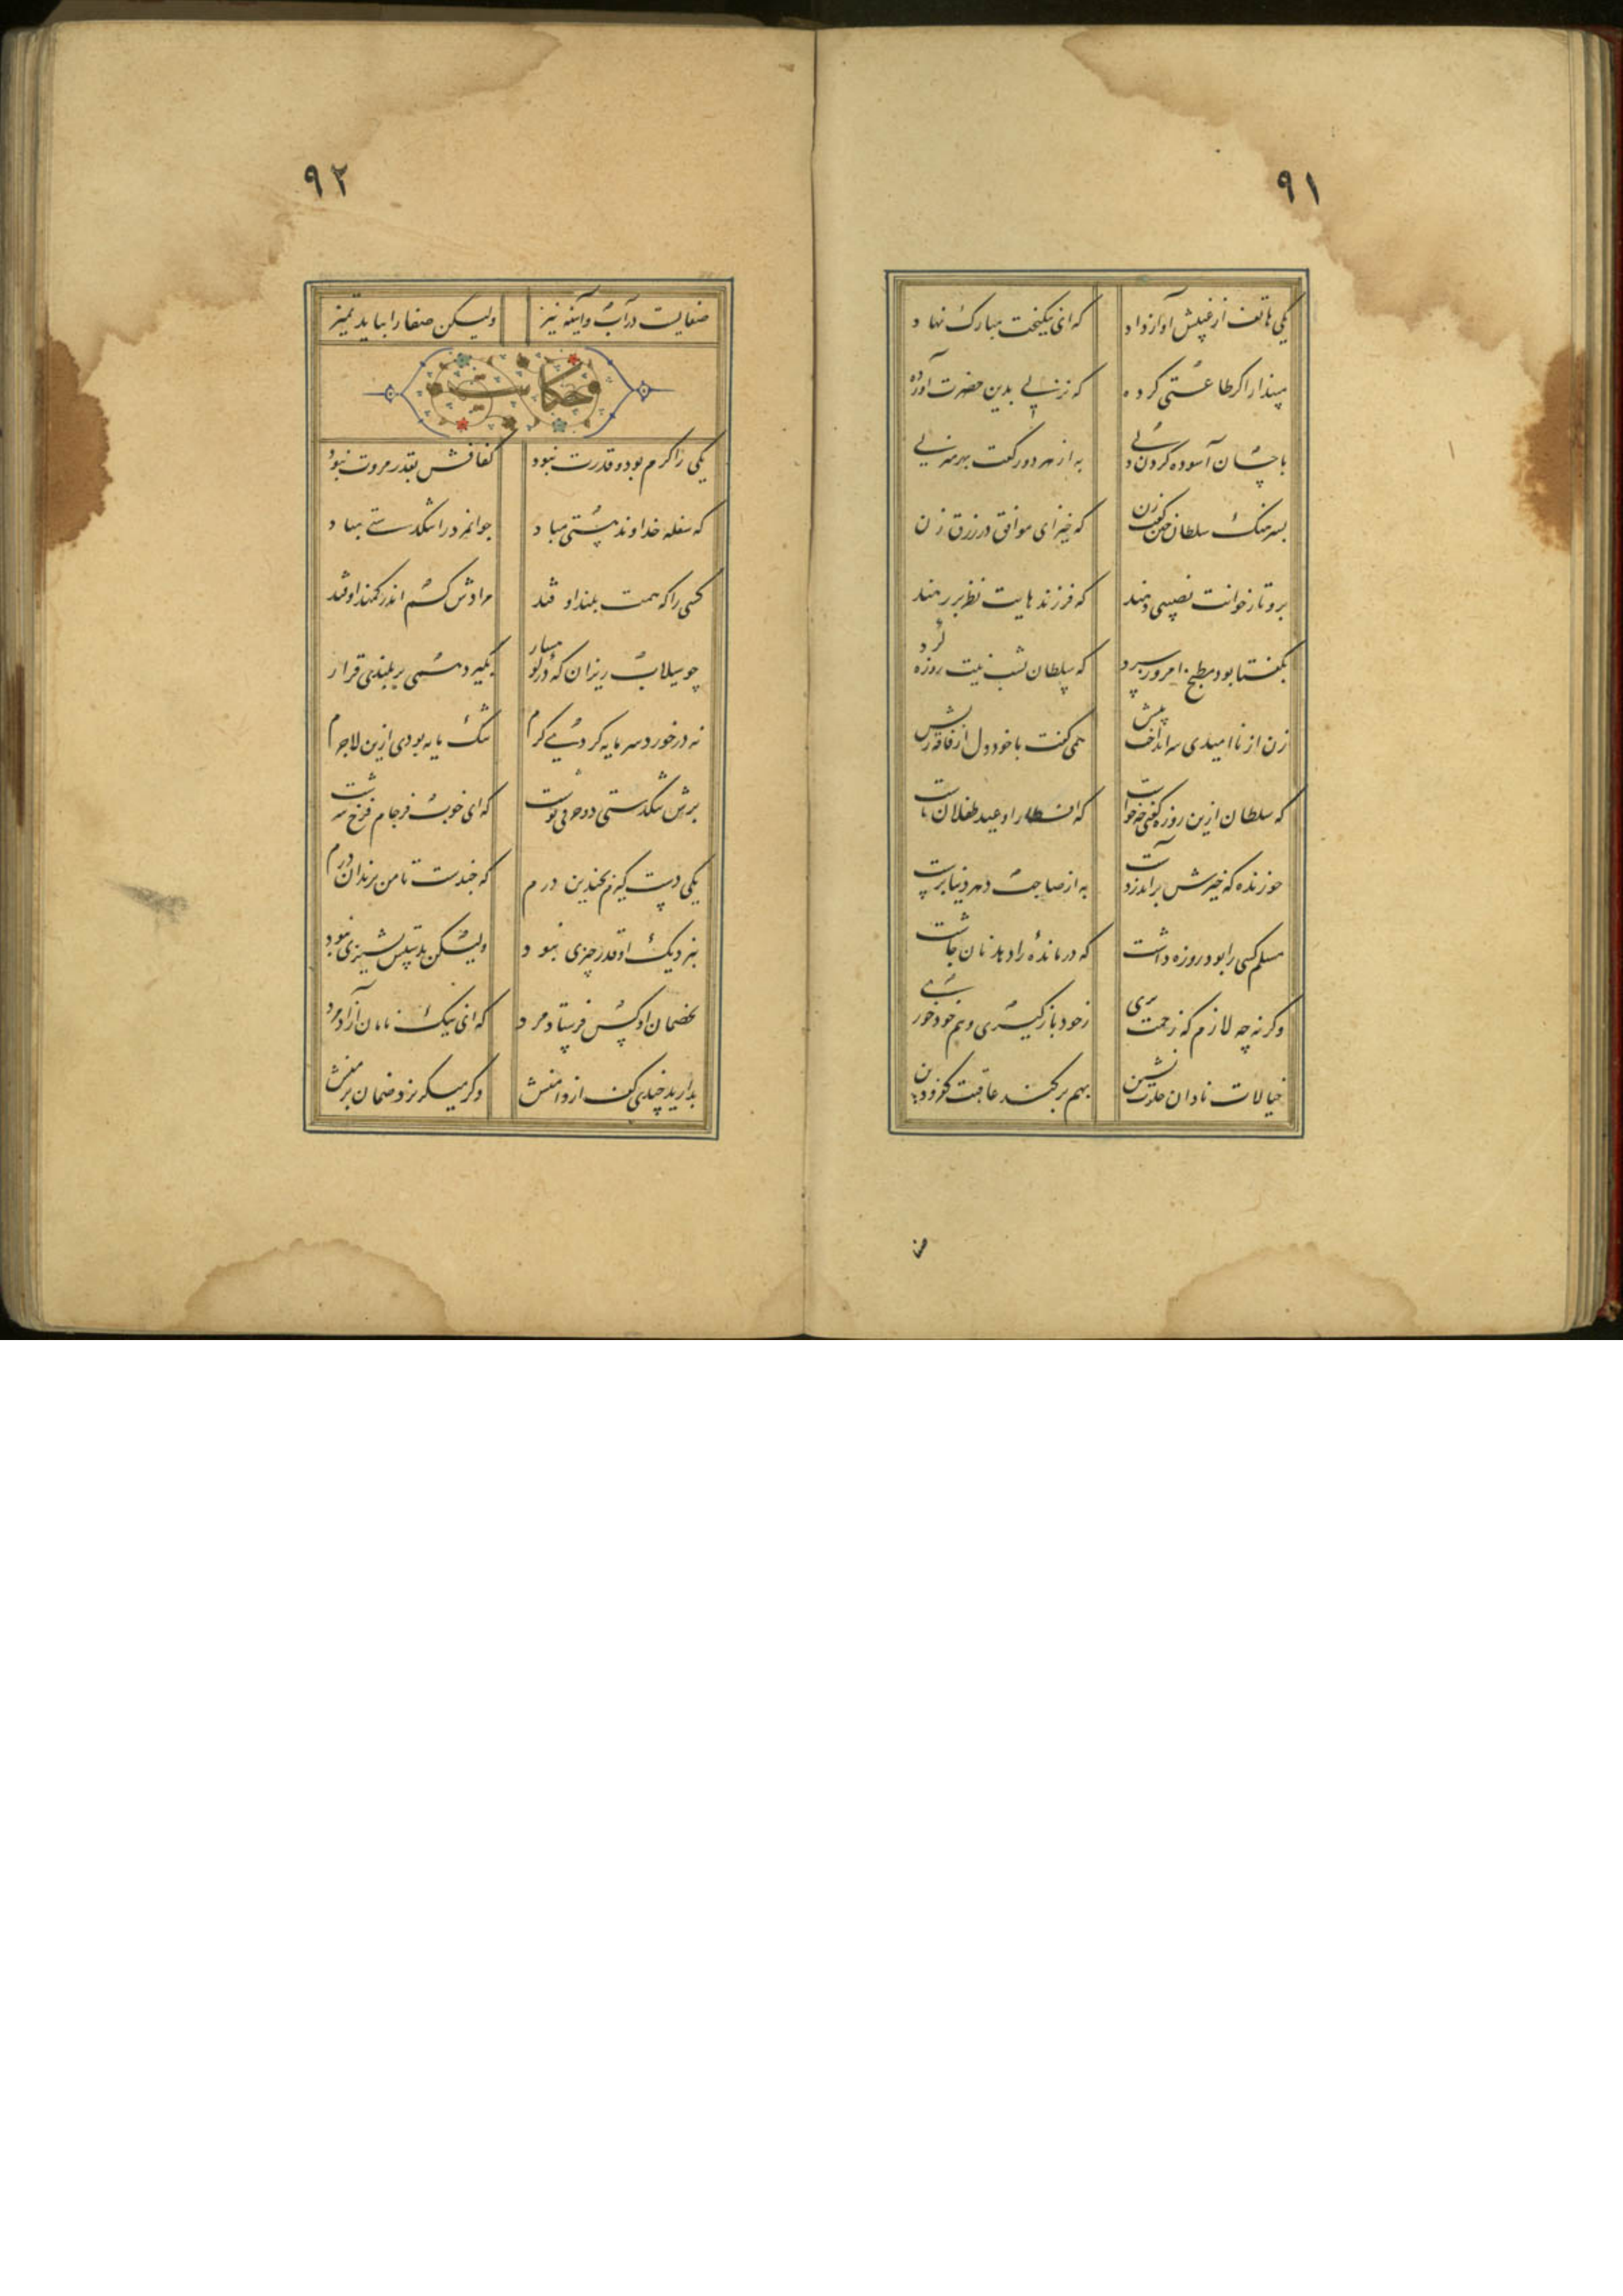 ۹۱
یکی هاتف از غیبش آواز داد که ای نیکبخت مبارک نهاد
مپندار اگر طاعتی کرده که نزلی بدین حضرت آورده
باحسان آسوده کردن دلی به از هر دو رکعت بهر منزلی
بسرهنگ سلطان چنین گفت زن که خیز ای موافق در رزق زن
برو تا ز خوانت نصیبی دهند که فرزندهایت نظر بر رهند
بگفتا بود مطبخ امروز سرد که سلطان بشب نیت روزه کرد
زن از ناامیدی سر انداخت پیش همی گفت با خود دل از فاقه ریش
که سلطان ازین روزه گفتی چه خواست که افطار او عید طفلان ماست
خورنده که خیرش برآید ز دست به از صایم دهر دنیا پرست
مسلم کسی را بود روزه داشت که درمانده را دهد نان چاشت
وگرنه چه لازم که زحمت بری ز خود بازگیری و هم خود خوری
خیالات نادان خلوت نشین بهم برکند عاقبت کفر و دین
۹۲
صفاییست در آب و آینه نیز ولیکن صفا را بباید تمیز
حکایت
یکی را کرم بود و قدرت نبود کفافش بقدر مروت نبود
که سفله خداوند هستی مباد جوانمرد را تنگدستی مباد
کسی را که همت بلند اوفتد مرادش کم اندر کمند اوفتد
چو سیلاب ریزان که در کوهسار نگیرد همی بر بلندی قرار
نه در خورد سرمایه کردی کرم تنک مایه بودی ازین لاجرم
برش تنگدستی دو حرفی نوشت که ای خوب فرجام فرخ سرشت
یکی دست گیرم بچندین درم که چندست تا من بزندان درم
بنزدیک او قدر چیزی نبود ولیکن بدستش پشیزی نبود
بخصمان او کس فرستاد مرد که ای نیک نامان آزاد مرد
بدارید چندی کف از دامنش وگر میگریزد ضمان بر منش